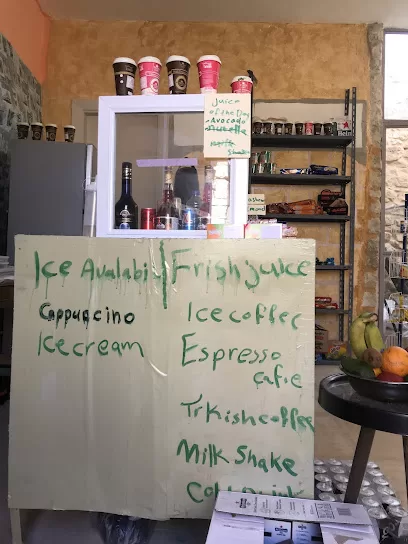 Juice
of the Day
Avocado
Nutella
milk
Shake
Ice Avalabi
Cappucino
Icecream
Frish juice
Ice coffee
Espresso
cafie
Trkish coffee
Milk Shake